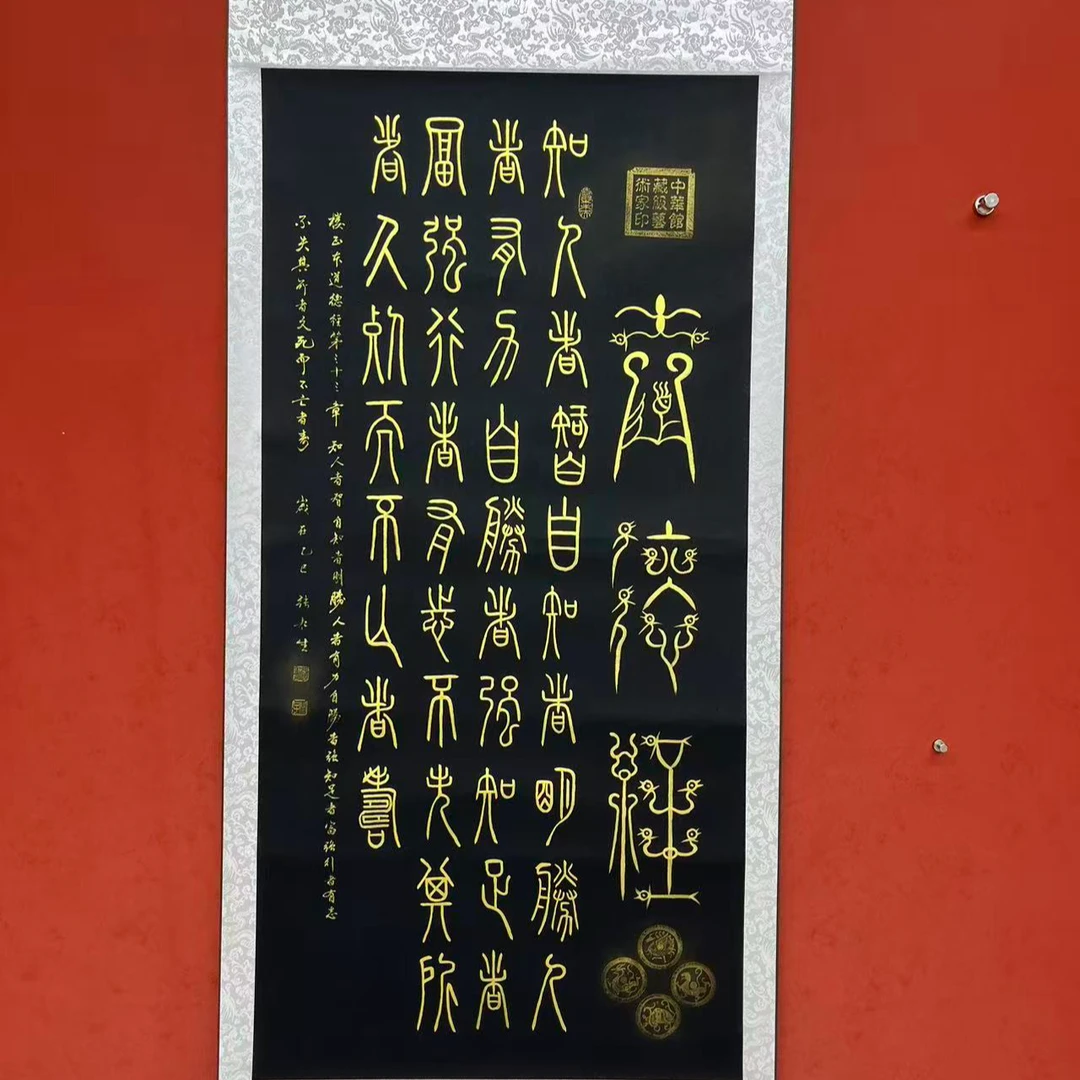 中華館
藏級藝
術家印
道德經
知人者智自知者明勝人
者有力自勝者强知足者
富强行者有志不失其所
者久死而不亡者壽
道德经第三十三章 知人者智自知者明勝人者有力自勝者强知足者富强行者有志
不失其所者久死而不亡者寿 岁在乙巳